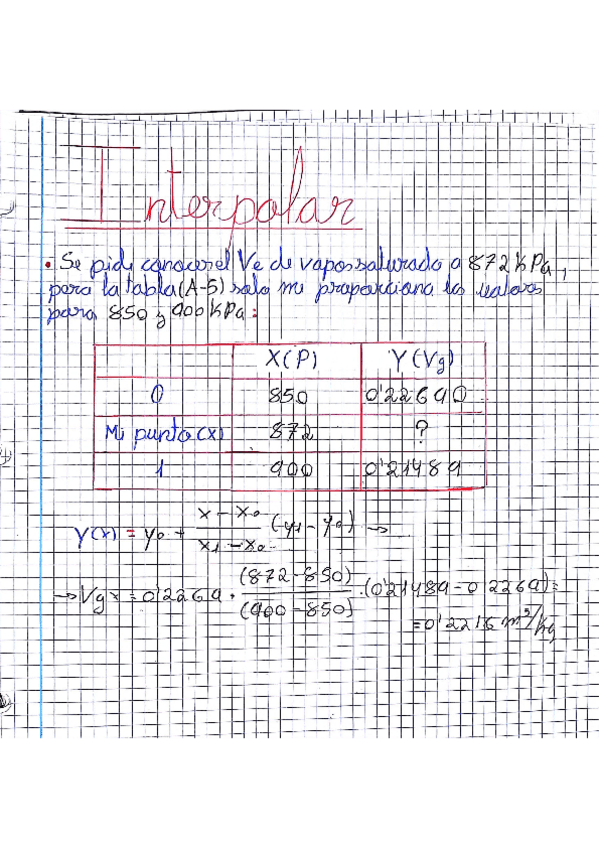 Interpolar
• Se pide conocer el Ve de vapor saturado a 872 kPa,
pero la tabla (A-5) solo me proporciona los valores
para 850 y 900 kPa:
X(P) Y(Vg)
0 850 0'22690
Mi punto (x) 872 ?
1 900 0'21489
Y(x) = y0 + (x - x0)/(x1 - x0) (y1 - y0) →
→ Vgx = 0'2269 · (872-850)/(900-850) · (0'21489 - 0'2269) =
= 0'2216 m³/kg